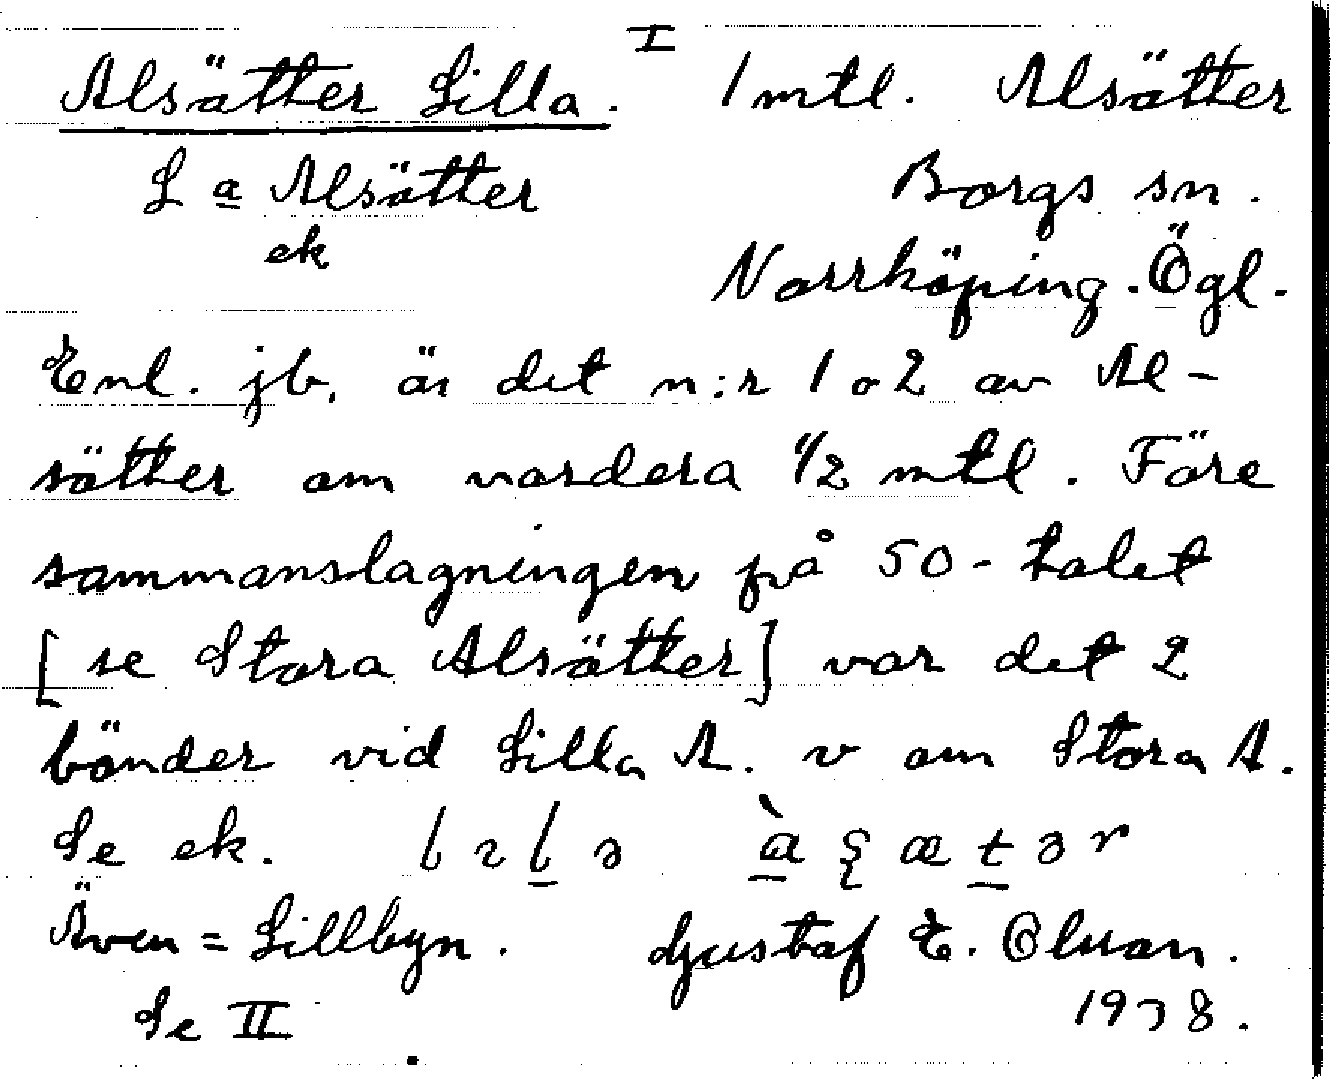 I
Alsätter Lilla. 1 mtl. Alsätter
L a Alsätter Borgs sn.
ek
Norrköping. Ögl.
Enl. jb. är det n:r 1 o 2 av Al-
sätter om vardera 1/2 mtl. Före
sammanslagningen på 50-talet
[se Stora Alsätter] var det 2
bönder vid Lilla A. v om Stora A.
Se ek. lɩlə àʂætər
Även = Lillbyn. Gustaf E. Olsson.
Se II 1938.